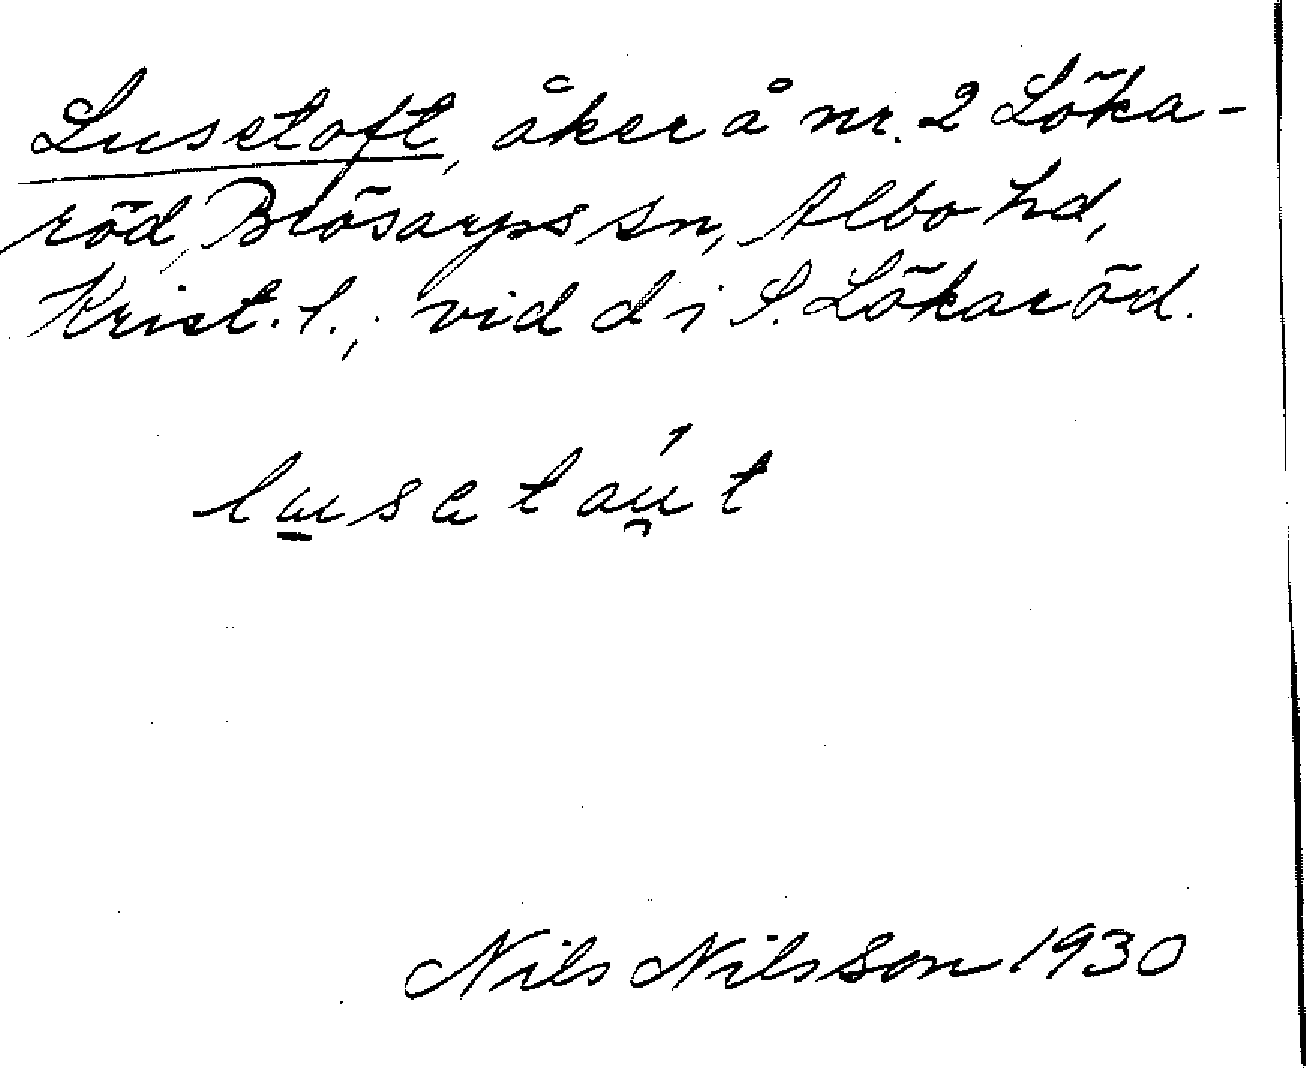 Lusetoft, åker å nr. 2 Löka-
röd, Brösarps sn, Albo hd,
Krist. l., vid d i S. Lökaröd.
lusatáu̯t
Nils Nilsson 1930